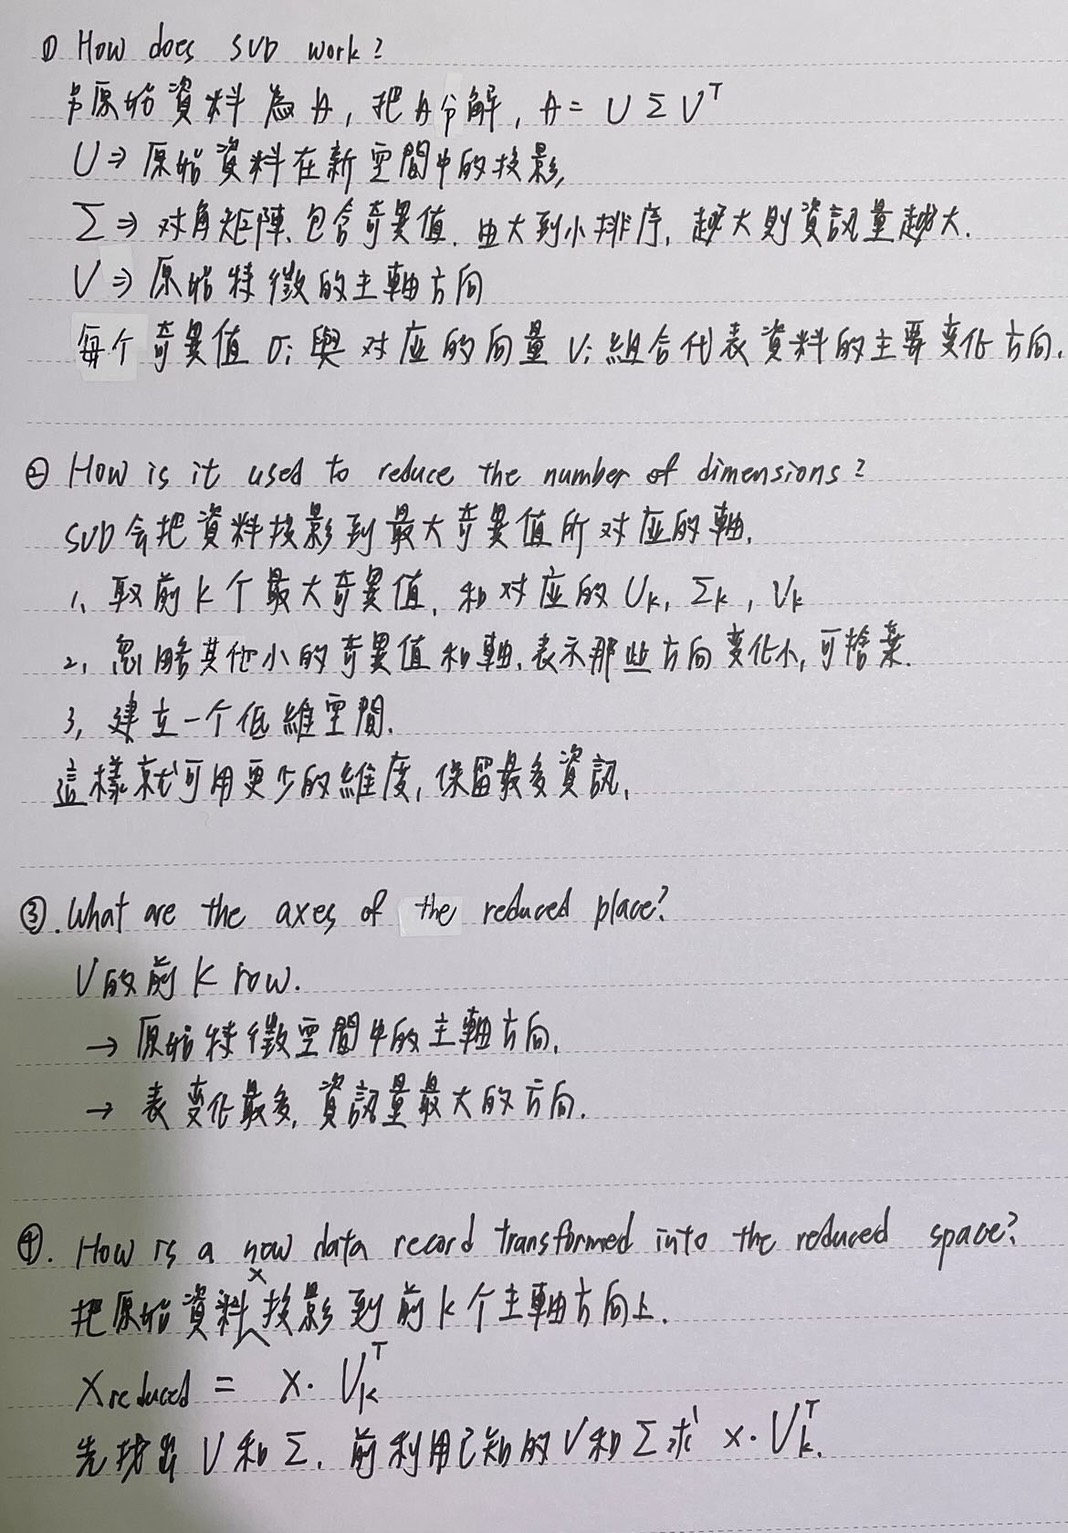 ① How does SVD work?
原始資料為A, 把A分解, A = U Σ Vᵀ
U ⇒ 原始資料在新空間中的投影,
Σ ⇒ 对角矩陣, 包含奇異值, 由大到小排序, 越大則資訊量越大.
V ⇒ 原始特徵的主軸方向
每个奇異值 σi 與对应的向量 Vi 組合代表資料的主要变化方向.
② How is it used to reduce the number of dimensions?
SVD会把資料投影到最大奇異值所对应的軸.
1, 取前k个最大奇異值, 和对应的 Uk, Σk, Vk
2, 忽略其他小的奇異值和軸, 表示那些方向变化小, 可捨棄.
3, 建立一个低維空間.
這樣就可用更少的維度, 保留最多資訊,
③. What are the axes of the reduced place?
V的前k row.
→ 原始特徵空間中的主軸方向.
→ 表变化最多, 資訊量最大的方向.
④. How is a new data record transformed into the reduced space?
把原始資料x投影到前k个主軸方向上.
Xreduced = x · Vkᵀ
先找出V和Σ, 利用已知的V和Σ求 x · Vkᵀ.